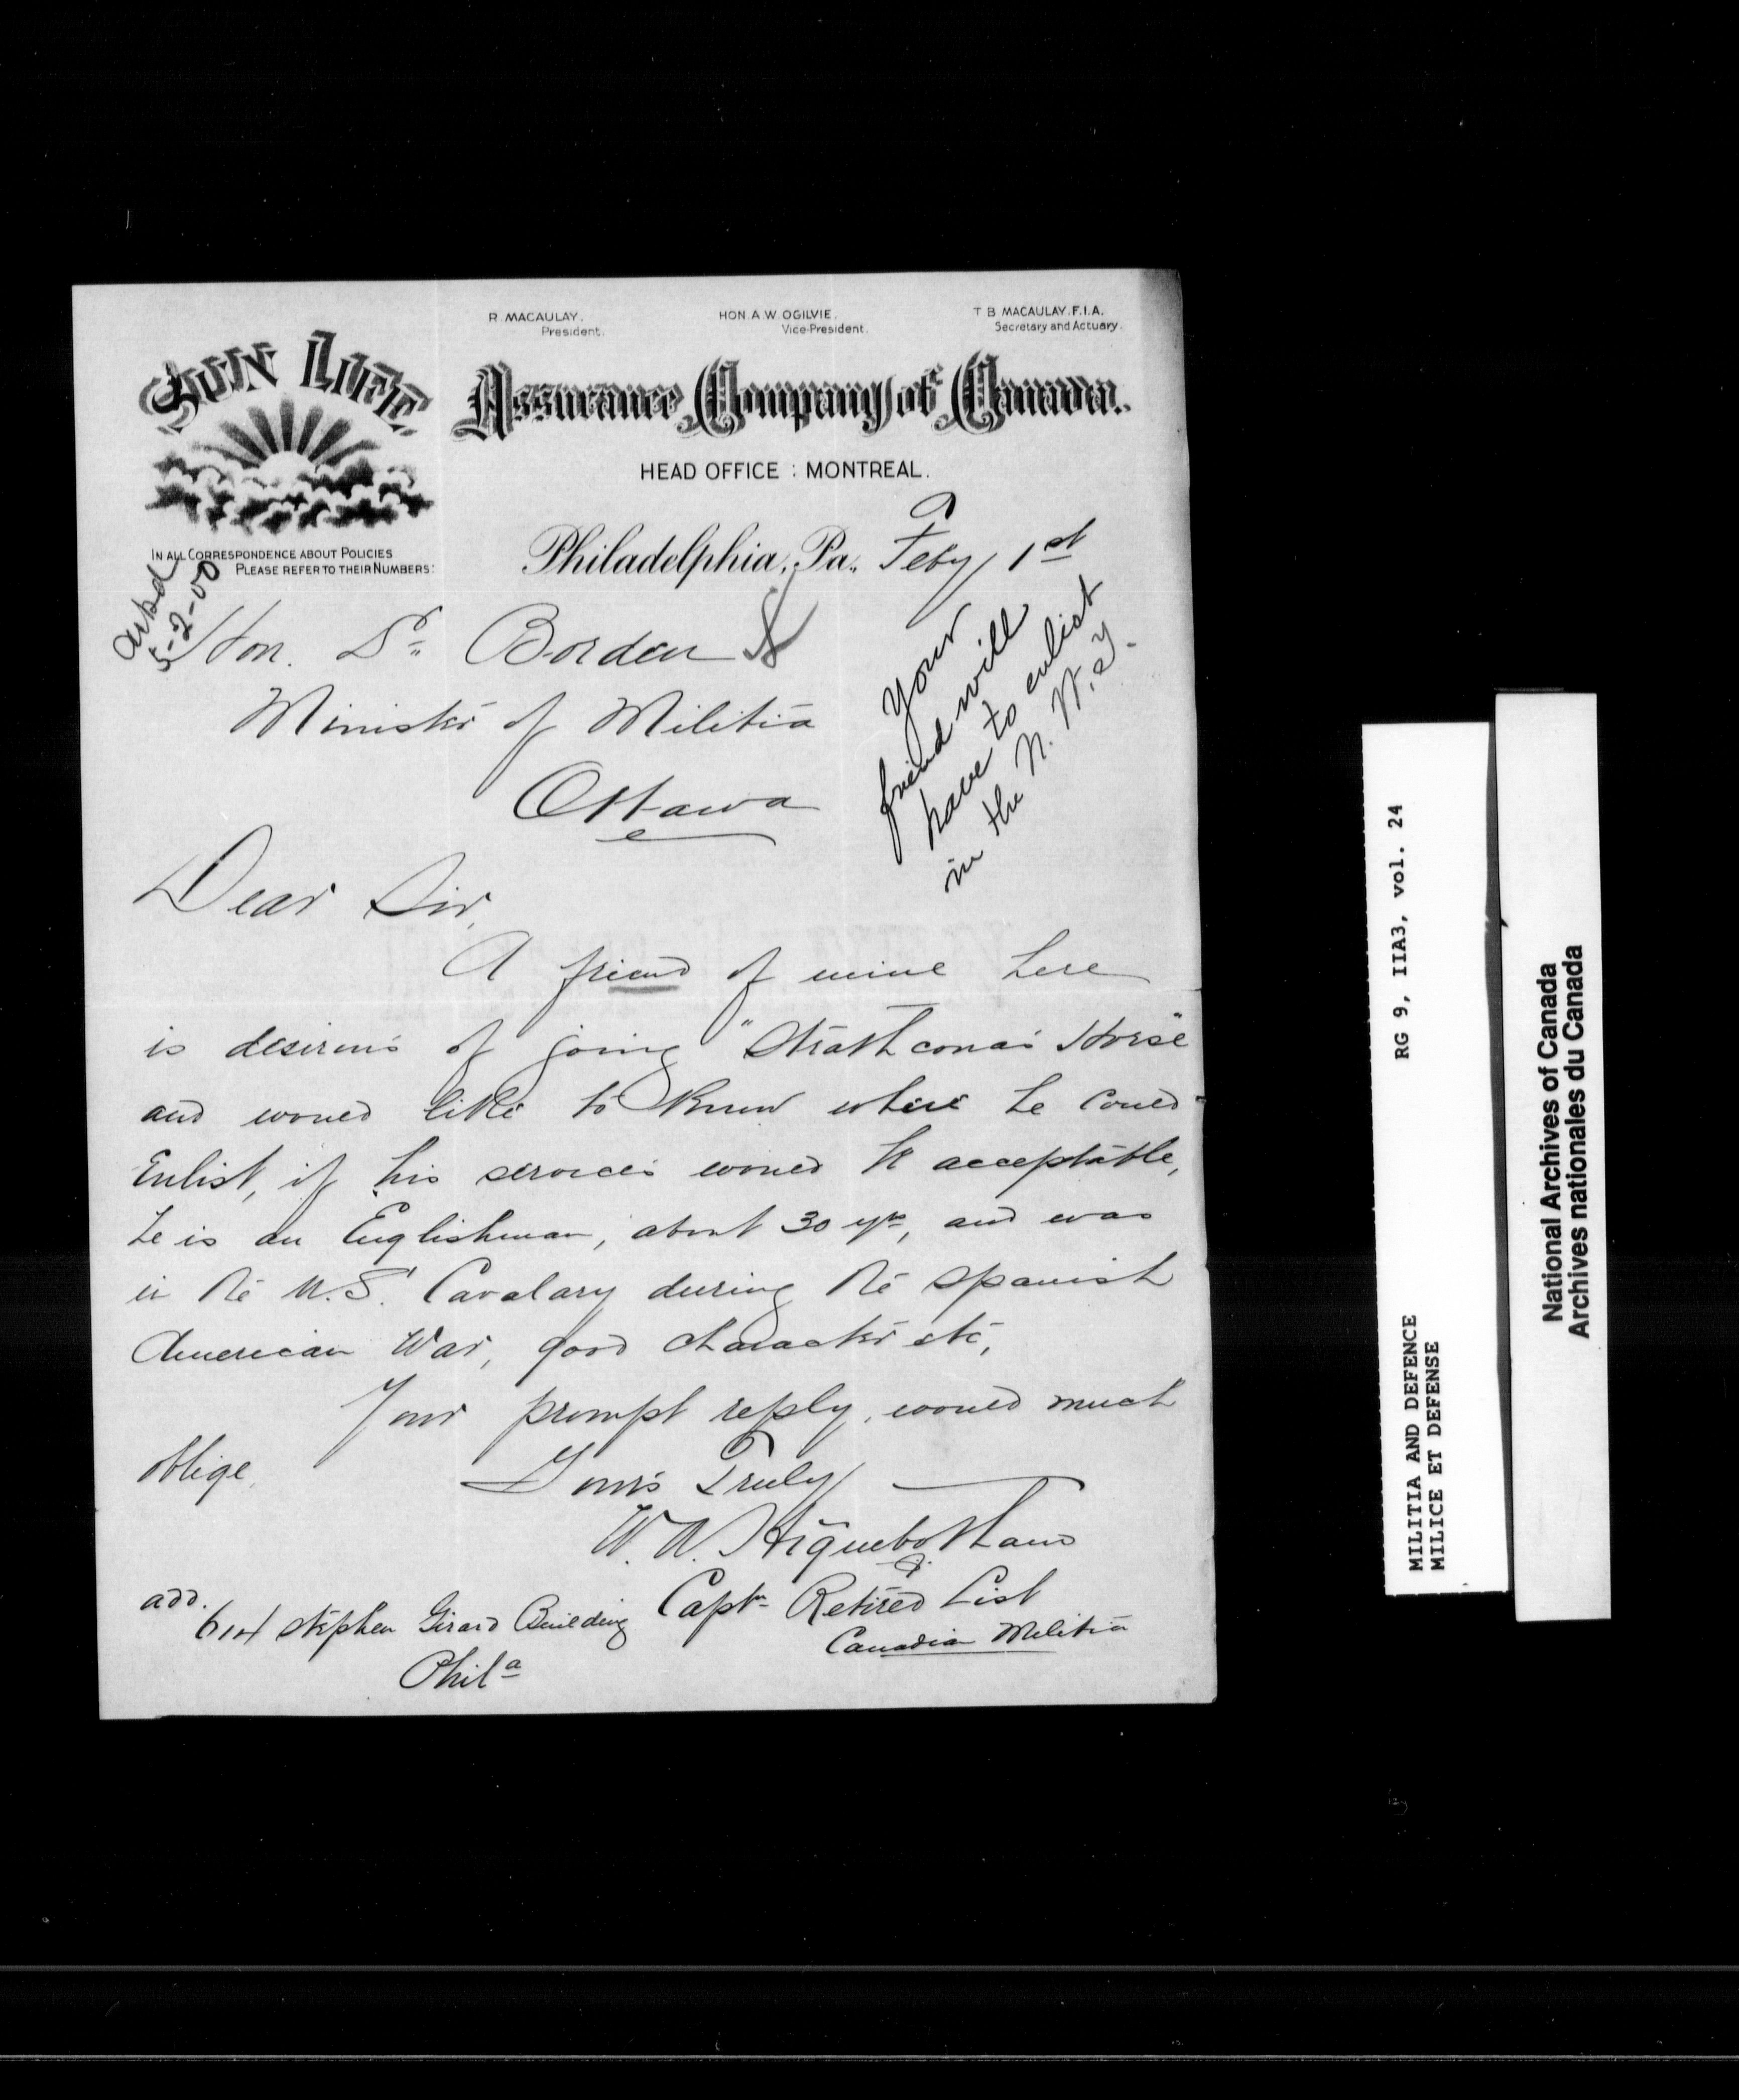 R. MACAULAY.
President.
HON. A. W. OGILVIE.
Vice-President.
T. B. MACAULAY. F.I.A.
Secretary and Actuary.
SUN LIFE
Assurance Company of Canada.
HEAD OFFICE : MONTREAL.
IN ALL CORRESPONDENCE ABOUT POLICIES
PLEASE REFER TO THEIR NUMBERS:
Philadelphia, Pa., Feby 1st
5-2-00
Hon. Dr. Borden
Minister of Militia
Ottawa
Your
friend will
have to enlist
in the N. W. T.
Dear Sir,
A friend of mine here
is desirous of joing "Strathcona's Horse"
and would like to know where he could
Enlist, if his services would be acceptable,
he is an Englishman, about 30 yrs, and was
in the U.S. Cavalary during the Spanish
American War, good character etc,
Your prompt reply, would much
oblige.
Yours Truly
W. W. Higuebotham
Captn Retired List
Canadian Militia
add.
614 Stephen Girard Building
Phila
RG 9, IIA3, vol. 24
MILITIA AND DEFENCE
MILICE ET DEFENSE
National Archives of Canada
Archives nationales du Canada